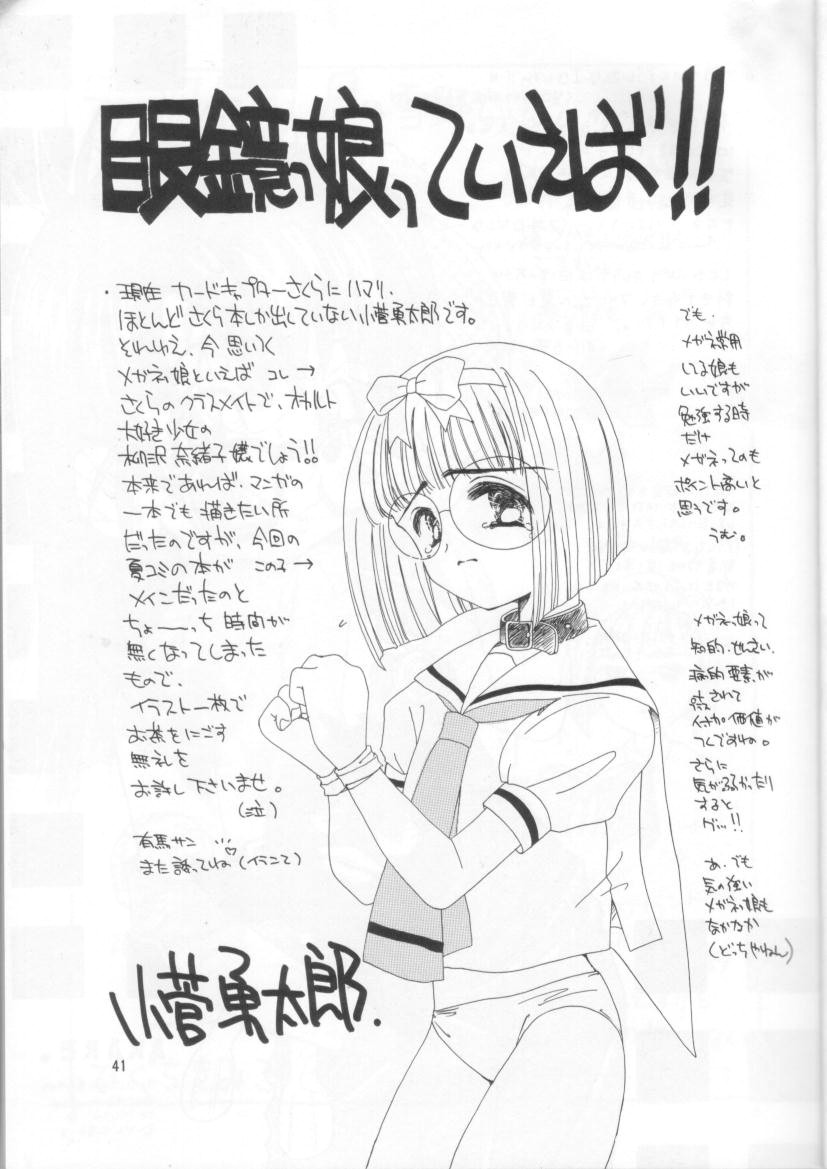 眼鏡っ娘っていえば!!
・現在 カードキャプターさくらにハマリ、
ほとんどさくら本しか出していない小菅勇太郎です。
それゆえ、今思いつく
メガネ娘といえば コレ→
さくらのクラスメイトで、オカルト
大好き少女の
柳沢奈緒子嬢でしょう!!
本来であれば、マンガの
一本でも描きたい所
だったのですが、今回の
夏コミの本が この子→
メインだったのと
ちょーーっち 時間が
無くなってしまった
もので、
イラスト一枚で
お茶をにごす
無礼を
お許し下さいませ。
(泣)
有馬サン
また誘ってね(イラこて)
小菅勇太郎.
でも、
メガネ常用
してる娘も
いいですが
勉強する時
だけ
メガネってのも
ポイント高いと
思うです。
うむ。
メガネっ娘って
知的、せんさい、
病的要素が
されて
付加価値が
つくですね。
さらに
気が弱かったり
すると
グー!!
あ、でも
気の強い
メガネっ娘も
なかなか
(どっちやねん)
41